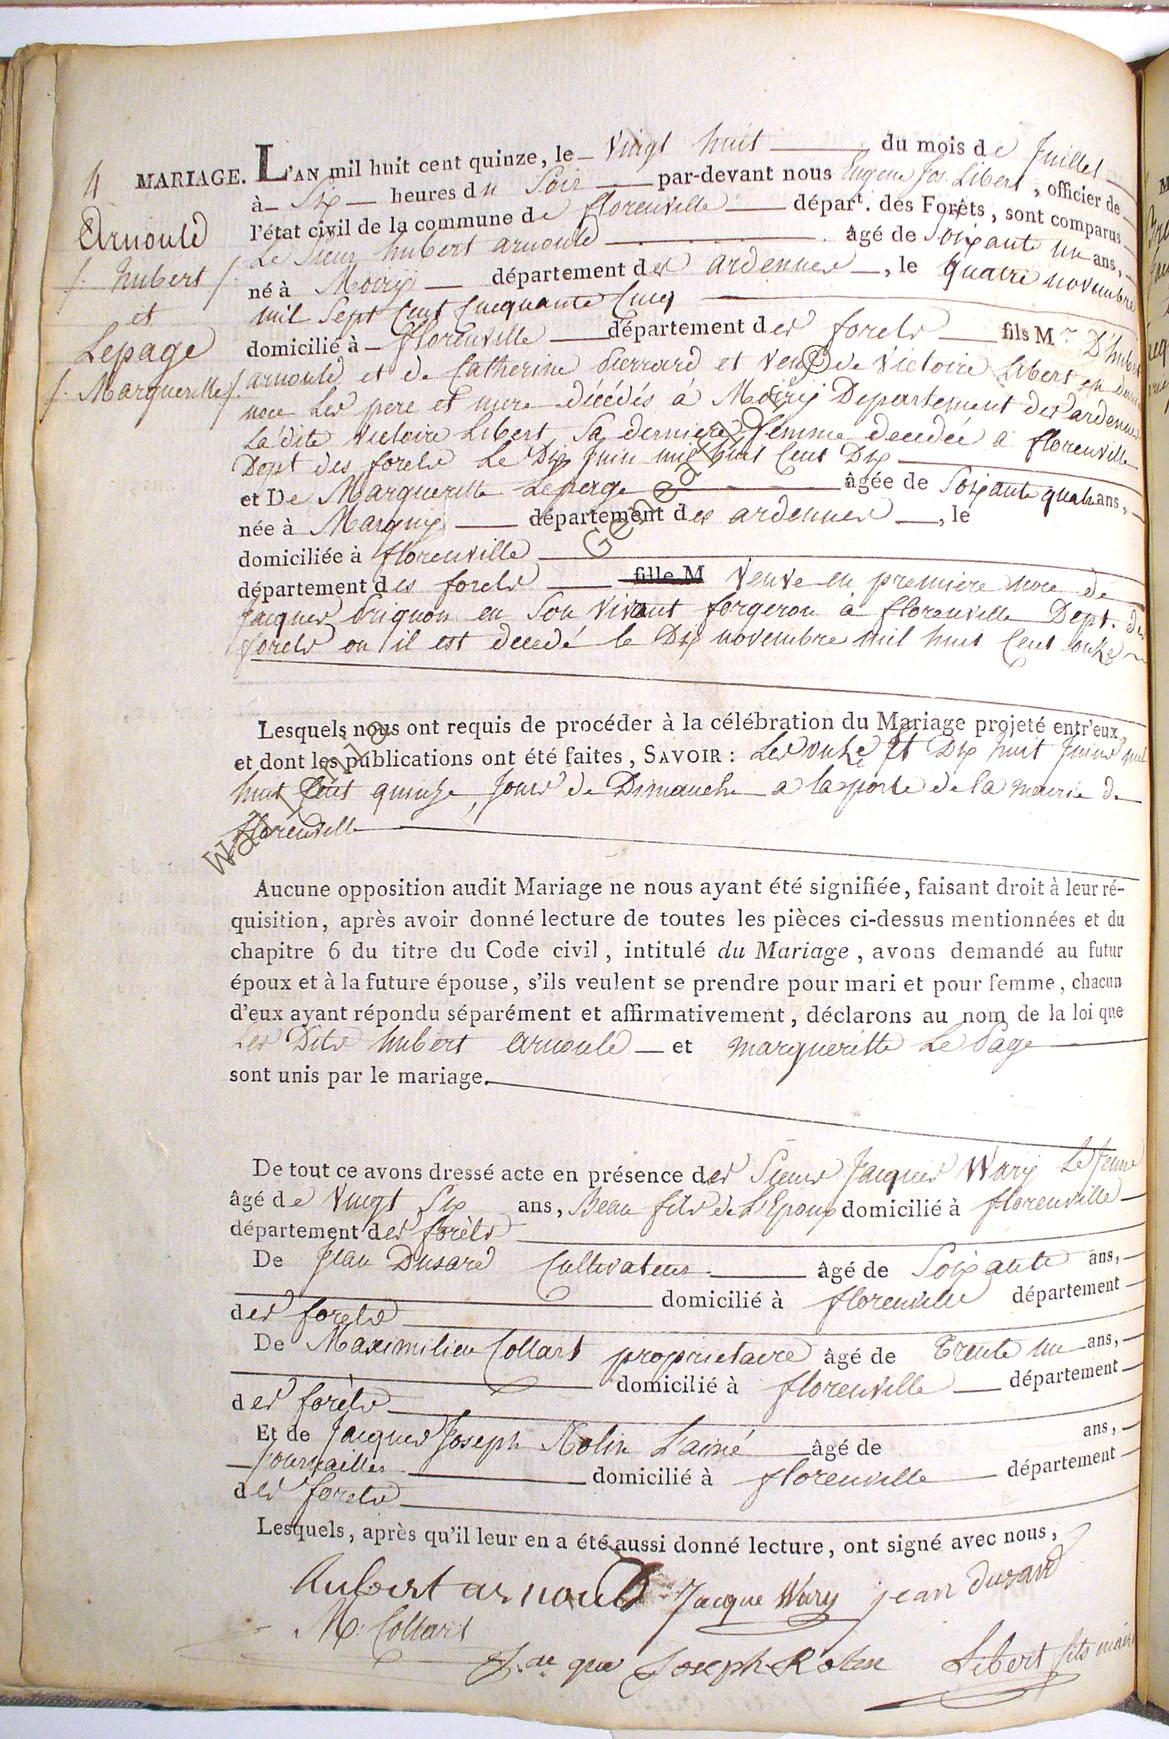 4 MARIAGE. L'AN mil huit cent quinze, le vingt huit du mois de Juillet
à Six heures du Soir par-devant nous Eugene Jos. Libert, officier de
Arnould
l'état civil de la commune de florenville départ. des Forêts, sont comparus
Le Sieur hubert arnould âgé de Soixante un ans,
f. hubert f.
né à Moiry département des ardennes, le quatre novembre
et
mil Sept Cent Cinquante Cinq
Lepage
domicilié à florenville département des forets fils M.r D'hubert
f. Marguerite f.
arnould et de Catherine Pierrard et veuf de Victoire Libert en
noce Les pere et mere décédés à Moiry Departement des ardennes
La dite Victoire Libert Sa derniere femme decedée a florenville
Dept des forets Le Dix Juin mil huit Cent Dix
et De Marguerite Lepage âgée de Soixante quatre ans,
née à Margny département des ardennes, le
domiciliée à florenville
département des forets fille M veuve en premiere noce de
Jacques Guignon en Son vivant forgeron à florenville Dept. des
forets ou il est decedé le Dix novembre mil huit Cent onze
Lesquels nous ont requis de procéder à la célébration du Mariage projeté entr'eux,
et dont les publications ont été faites, SAVOIR : Les onze et Dix huit Juin mil
huit Cent quinze, Jours de Dimanche a la porte de la mairie de
florenville
Aucune opposition audit Mariage ne nous ayant été signifiée, faisant droit à leur ré-
quisition, après avoir donné lecture de toutes les pièces ci-dessus mentionnées et du
chapitre 6 du titre du Code civil, intitulé du Mariage, avons demandé au futur
époux et à la future épouse, s'ils veulent se prendre pour mari et pour femme, chacun
d'eux ayant répondu séparément et affirmativement, déclarons au nom de la loi que
Les Dits hubert arnould et margueritte Le Page
sont unis par le mariage.
De tout ce avons dressé acte en présence des Sieurs Jacques Wary Le Jeune
âgé de vingt Six ans, Beau fils de L'Epoux domicilié à florenville
département des forêts
De Jean Dusard Cultivateur âgé de Soixante ans,
domicilié à florenville département
des forets
De Maximilien Collart proprietaire âgé de Trente un ans,
domicilié à florenville département
des forêts
Et de Jacques Joseph Rolin Lainé âgé de ans,
Journailler domicilié à florenville département
des forets
Lesquels, après qu'il leur en a été aussi donné lecture, ont signé avec nous,
hubert arnould Jacque Wary jean dusard
M. Collart
Joseph Rolin Libert fils maire